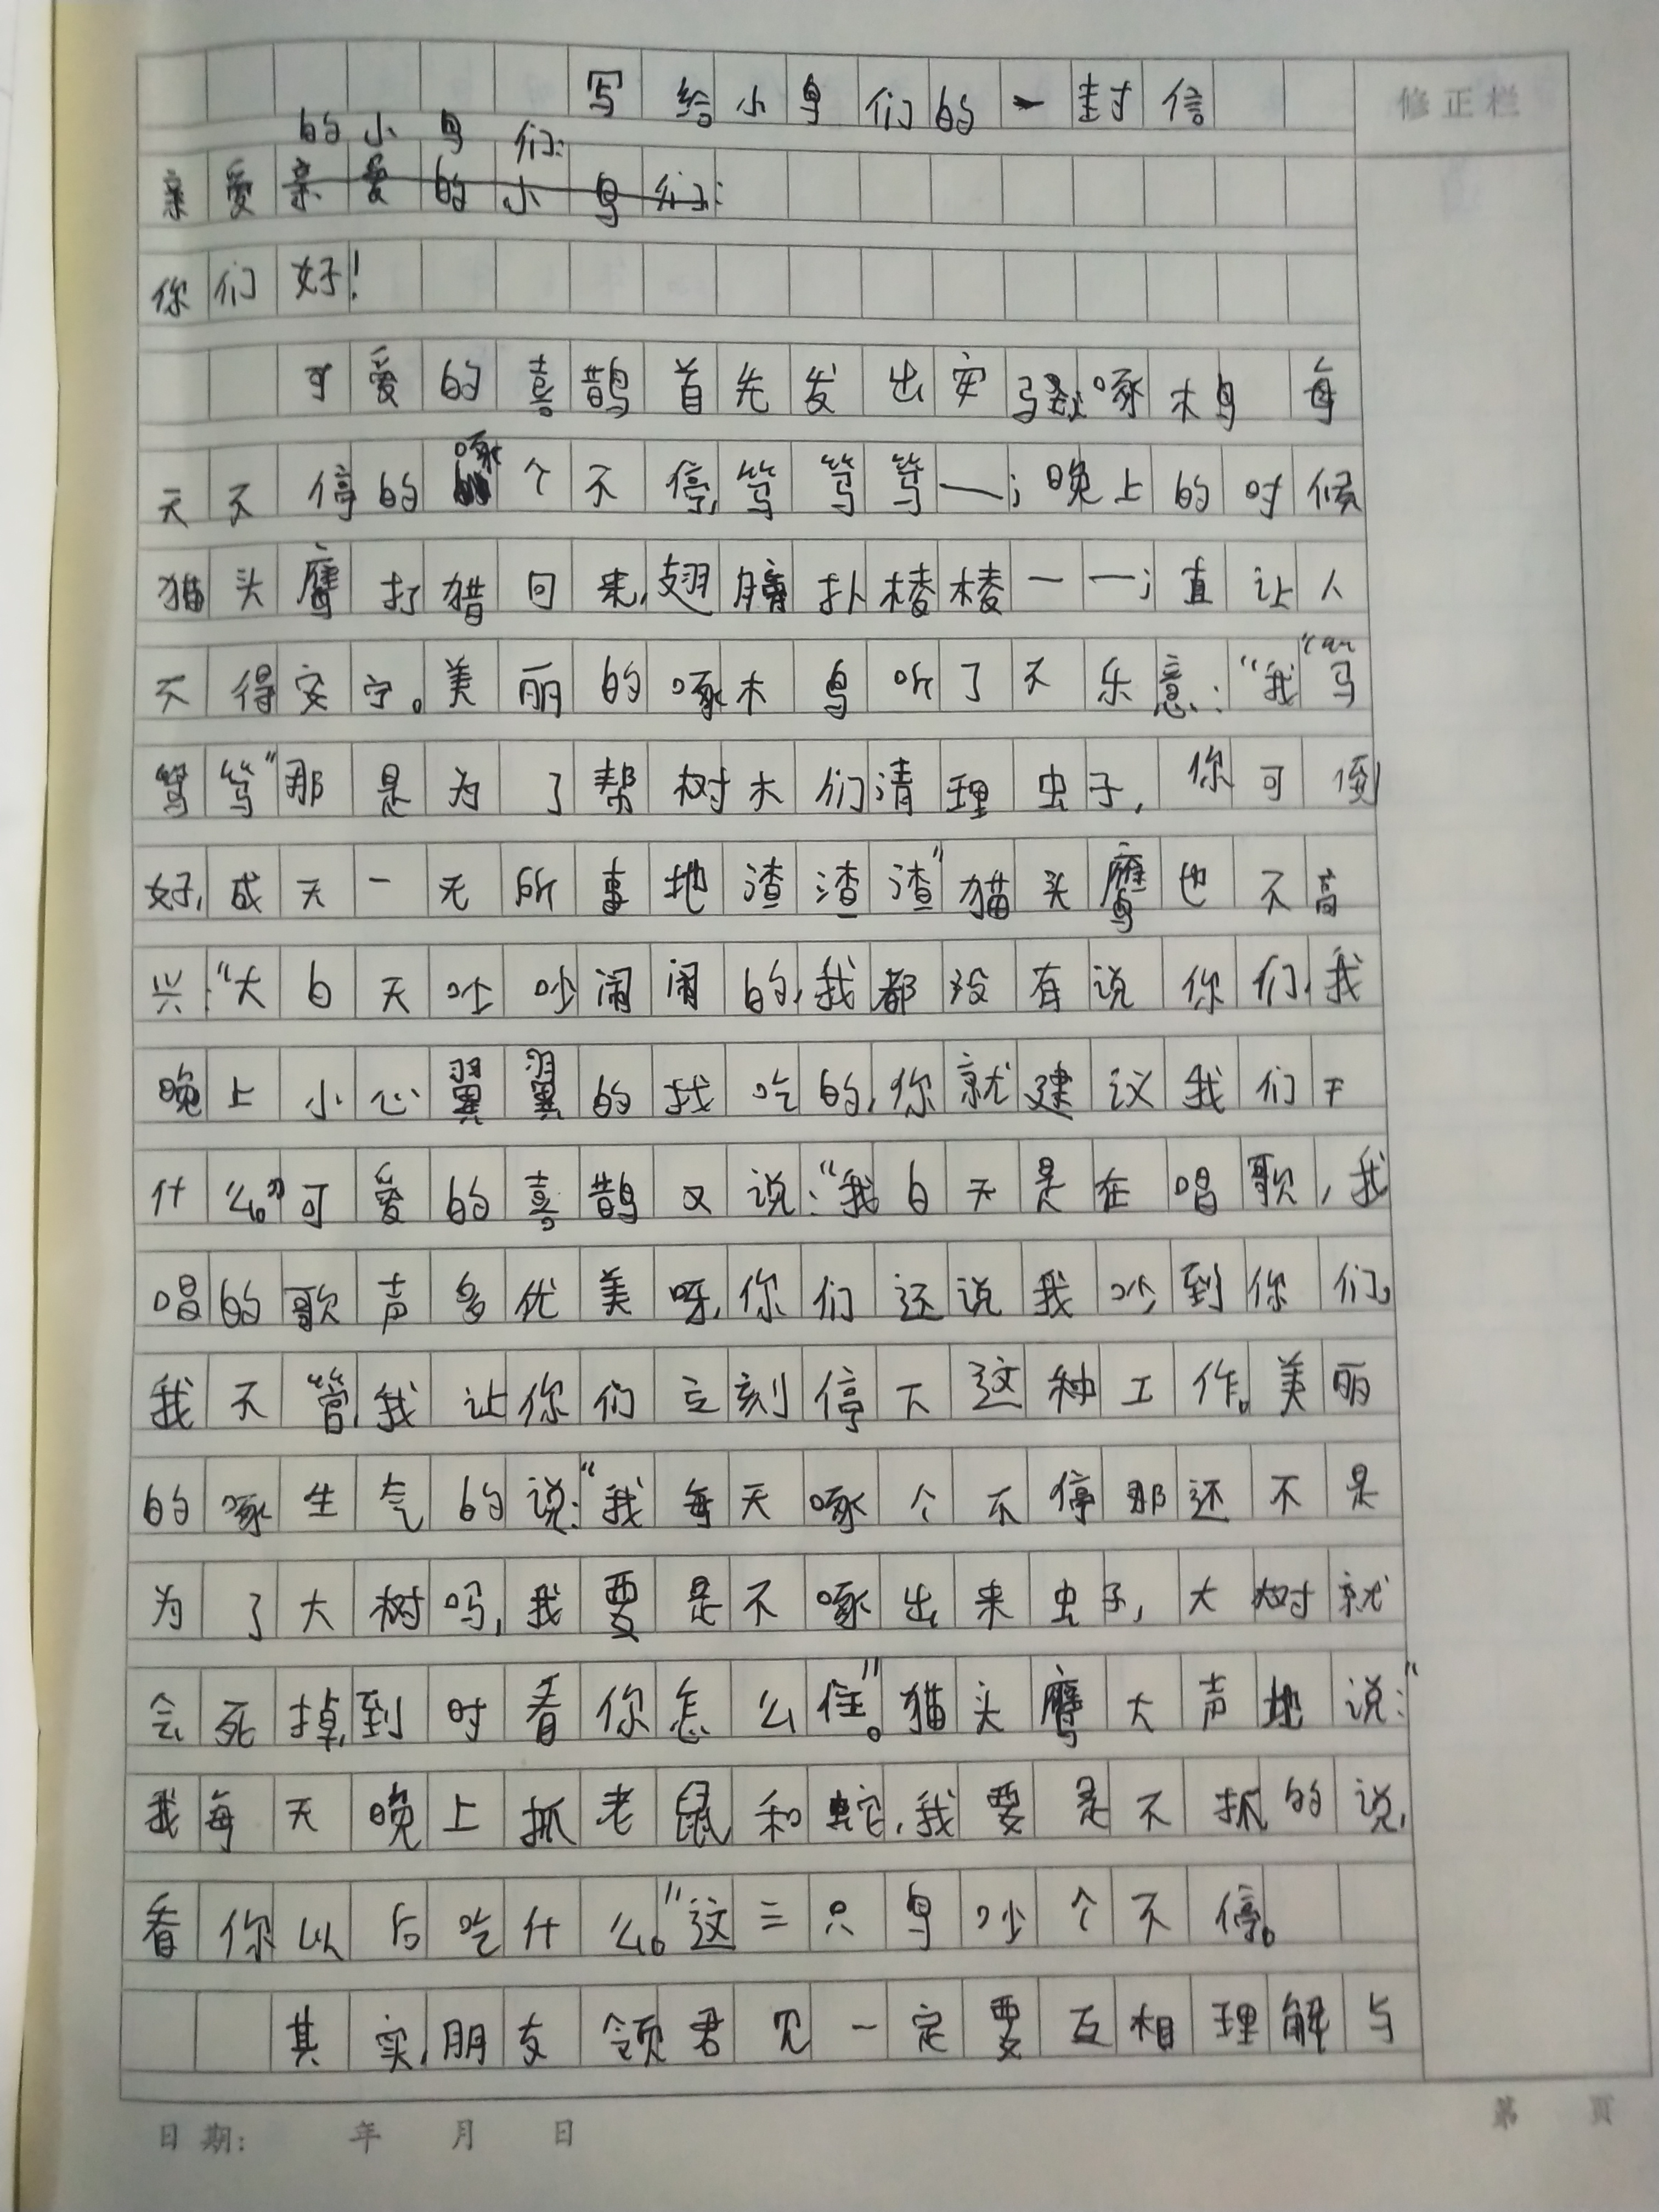 写给小鸟们的一封信
修正栏
的小鸟们:
亲爱亲爱的小鸟们:
你们好!
可爱的喜鹊首先发出安骚:啄木鸟 每
天不停的啄个不停,笃笃笃——;晚上的时候
猫头鹰打猎回来,翅膀扑棱棱——;直让人
不得安宁。美丽的啄木鸟听了不乐意:“我“笃
笃笃”那是为了帮树木们清理虫子,你可倒
好,成天一无所事地渣渣渣”猫头鹰也不高
兴:“大白天吵吵闹闹的,我都没有说你们,我
晚上小心翼翼的找吃的,你就建议我们干
什么。”可爱的喜鹊又说:“我白天是在唱歌,我
唱的歌声多优美呀,你们还说我吵到你们。
我不管,我让你们立刻停下这种工作。美丽
的啄生气的说:“我每天啄个不停那还不是
为了大树吗,我要是不啄出来虫子,大树就
会死掉,到时看你怎么住。”猫头鹰大声地说:“
我每天晚上抓老鼠和蛇,我要是不抓的说,
看你以后吃什么。”这三只鸟吵个不停。
其实,朋友领君见一定要互相理解与
日期: 年 月 日
第 页